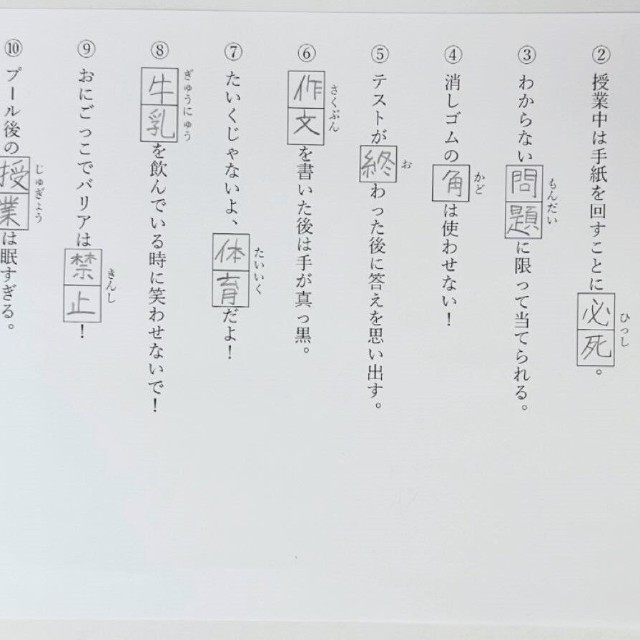 ② 授業中は手紙を回すことに必死。
ひっし
③ わからない問題に限って当てられる。
もんだい
④ 消しゴムの角は使わせない！
かど
⑤ テストが終わった後に答えを思い出す。
お
⑥ 作文を書いた後は手が真っ黒。
さくぶん
⑦ たいくじゃないよ、体育だよ！
たいいく
⑧ 牛乳を飲んでいる時に笑わせないで！
ぎゅうにゅう
⑨ おにごっこでバリアは禁止！
きんし
⑩ プール後の授業は眠すぎる。
じゅぎょう